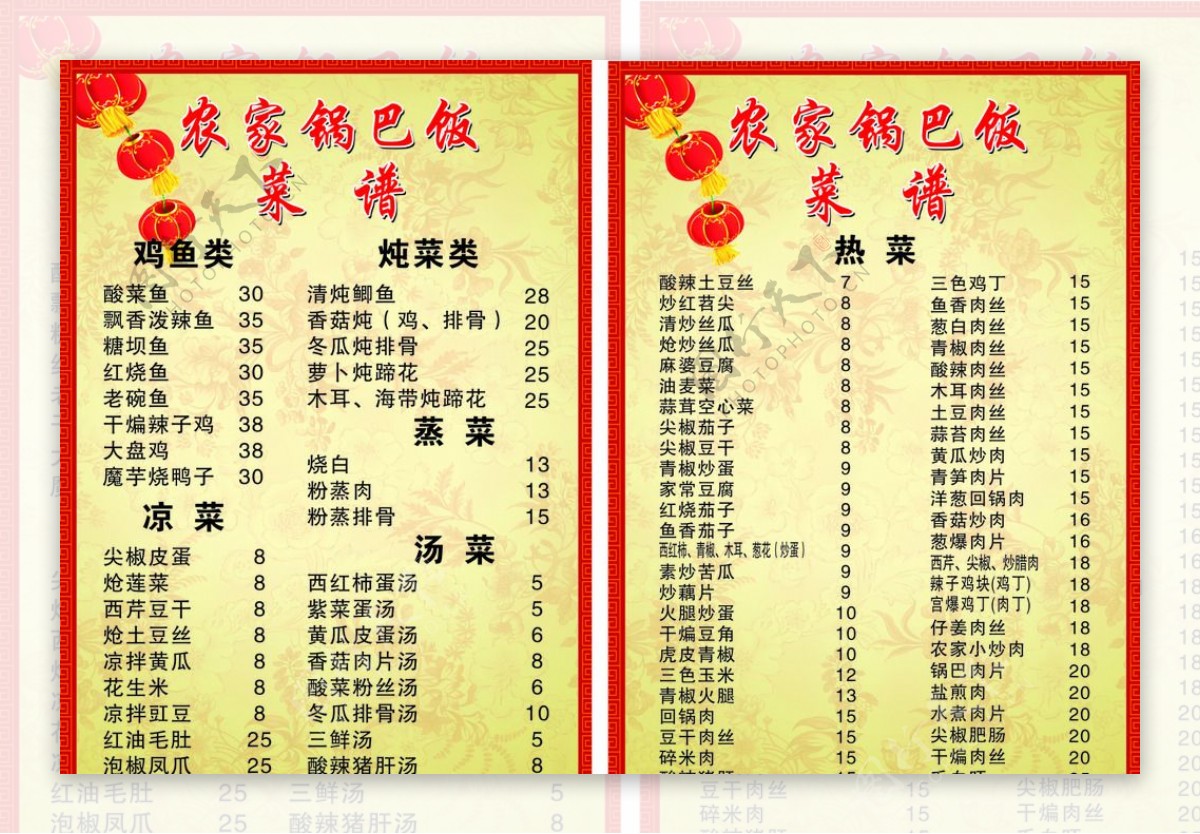 农家锅巴饭
菜 谱
鸡鱼类
酸菜鱼 30
飘香泼辣鱼 35
糖坝鱼 35
红烧鱼 30
老碗鱼 35
干煸辣子鸡 38
大盘鸡 38
魔芋烧鸭子 30
凉 菜
尖椒皮蛋 8
炝莲菜 8
西芹豆干 8
炝土豆丝 8
凉拌黄瓜 8
花生米 8
凉拌豇豆 8
红油毛肚 25
泡椒凤爪 25
炖菜类
清炖鲫鱼 28
香菇炖（鸡、排骨） 20
冬瓜炖排骨 25
萝卜炖蹄花 25
木耳、海带炖蹄花 25
蒸 菜
烧白 13
粉蒸肉 13
粉蒸排骨 15
汤 菜
西红柿蛋汤 5
紫菜蛋汤 5
黄瓜皮蛋汤 6
香菇肉片汤 8
酸菜粉丝汤 6
冬瓜排骨汤 10
三鲜汤 5
酸辣猪肝汤 8
农家锅巴饭
菜 谱
热 菜
酸辣土豆丝 7
炒红苕尖 8
清炒丝瓜 8
炝炒丝瓜 8
麻婆豆腐 8
油麦菜 8
蒜茸空心菜 8
尖椒茄子 8
尖椒豆干 8
青椒炒蛋 9
家常豆腐 9
红烧茄子 9
鱼香茄子 9
西红柿、青椒、木耳、葱花（炒蛋） 9
素炒苦瓜 9
炒藕片 9
火腿炒蛋 10
干煸豆角 10
虎皮青椒 10
三色玉米 12
青椒火腿 13
回锅肉 15
豆干肉丝 15
碎米肉 15
三色鸡丁 15
鱼香肉丝 15
葱白肉丝 15
青椒肉丝 15
酸辣肉丝 15
木耳肉丝 15
土豆肉丝 15
蒜苔肉丝 15
黄瓜炒肉 15
青笋肉片 15
洋葱回锅肉 15
香菇炒肉 16
葱爆肉片 16
西芹、尖椒、炒腊肉 18
辣子鸡块(鸡丁) 18
宫爆鸡丁(肉丁) 18
仔姜肉丝 18
农家小炒肉 18
锅巴肉片 20
盐煎肉 20
水煮肉片 20
尖椒肥肠 20
干煸肉丝 20
红油毛肚 25 三鲜汤 5
泡椒凤爪 25 酸辣猪肝汤 8
豆干肉丝 15 尖椒肥肠
碎米肉 15 干煸肉丝